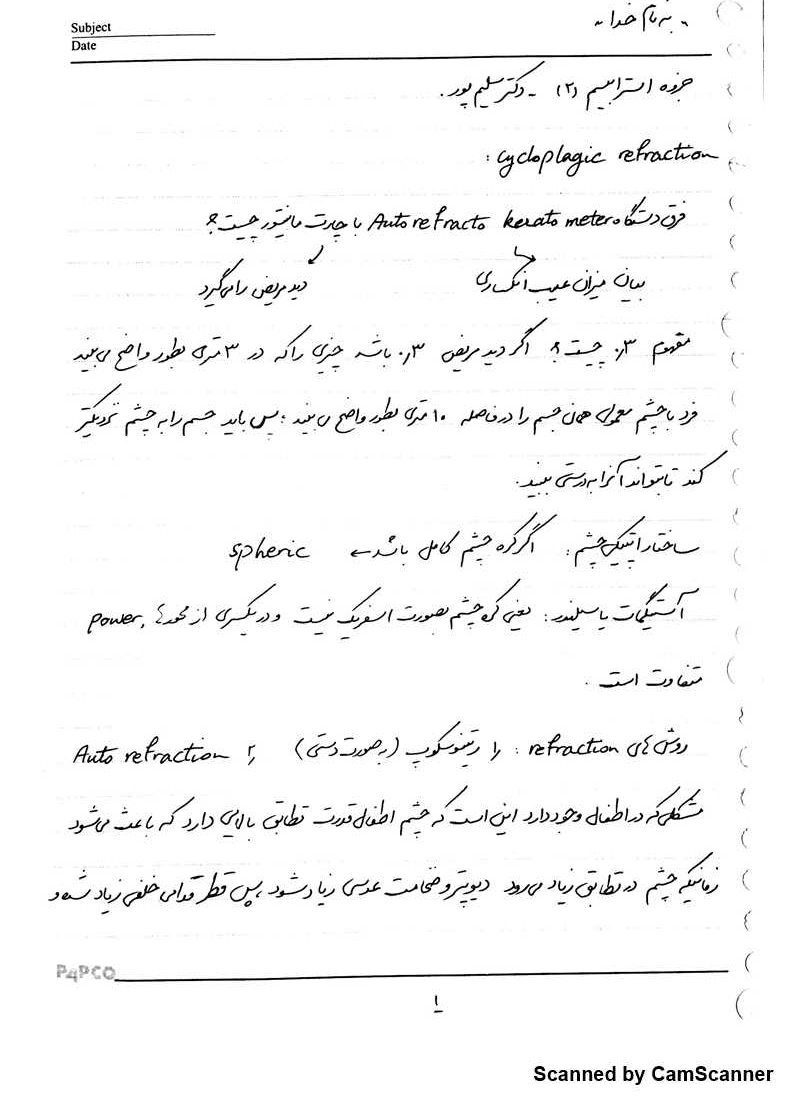 Subject
Date
- به نام خدا -
جزوه استرابیسم (۲) - دکتر سلیم پور.
cycloplagic refraction :
فرق دستگاه Auto refracto kerato meter با چارت مانیتور چیست؟
بیان میزان عیب انکساری
دید مریض را می‌گیرد
مفهوم ۰٫۳ چیست؟ اگر دید مریض ۰٫۳ باشد چیزی را که در ۳ متری بطور واضح می‌بیند
فرد با چشم معمولی همان جسم را در فاصله ۱۰ متری بطور واضح می‌بیند؛ پس باید جسم را به چشم نزدیکتر
کند تا بتواند آنرا به درستی ببیند.
ساختار اپتیکی چشم: اگر کره چشم کامل باشد ← spheric
آستیگمات یا سیلندر: یعنی کره چشم بصورت اسفریک نیست و در یکسری از محورها، power
متفاوت است.
روش های refraction: ۱) رتینوسکوپ (به صورت دستی) ۲) Auto refraction
مشکلی که در اطفال وجود دارد این است که چشم اطفال قدرت تطابق بالایی دارد که باعث می‌شود
زمانیکه چشم در تطابق زیاد می‌رود دیوپتر و ضخامت عدسی زیاد شود، پس قطر قدامی خلفی زیاد شده و
P4PCO
۱
Scanned by CamScanner